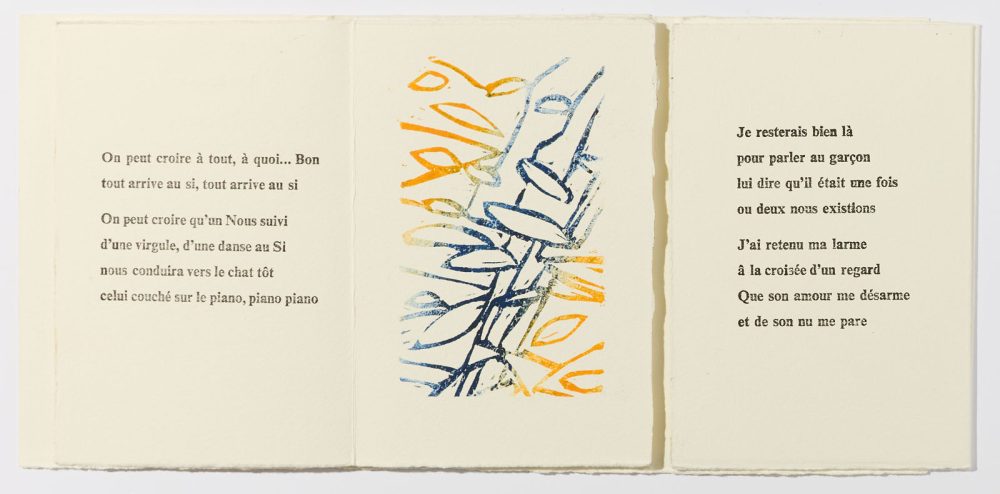 On peut croire à tout, à quoi... Bon
tout arrive au si, tout arrive au si
On peut croire qu'un Nous suivi
d'une virgule, d'une danse au Si
nous conduira vers le chat tôt
celui couché sur le piano, piano piano
Je resterais bien là
pour parler au garçon
lui dire qu'il était une fois
ou deux nous existions
J'ai retenu ma larme
â la croisée d'un regard
Que son amour me désarme
et de son nu me pare